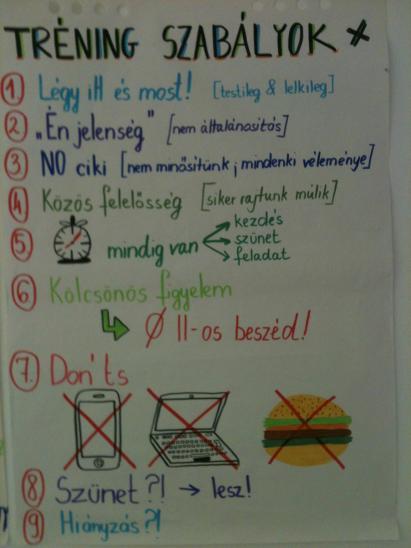 TRÉNING SZABÁLYOK
1 Légy itt és most! [testileg & lelkileg]
2 „Én jelenség" [nem általánosítás]
3 NO ciki [nem minősítünk; mindenki véleménye]
4 Közös felelősség [siker rajtunk múlik]
5 mindig van
kezdés
szünet
feladat
6 Kölcsönös figyelem
Ø II-os beszéd!
7. Don'ts
8 Szünet?! → lesz!
9 Hiányzás?!